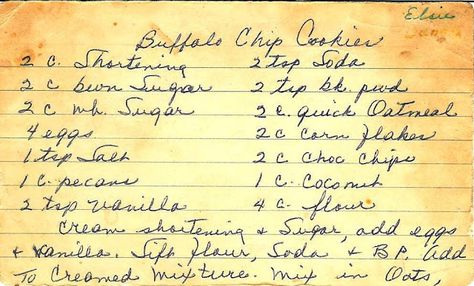 Elsie
Buffalo Chip Cookies
2 c. Shortening 2 tsp Soda
2 c bwn Sugar 2 tsp bk. pwd
2 c wh. Sugar 2 c. quick Oatmeal
4 eggs 2 c corn flakes
1 tsp Salt 2 c choc chips
1 c. pecans 1 c. coconut
2 tsp vanilla 4 c. flour
Cream shortening & Sugar, add eggs
& vanilla. Sift flour, Soda & B.P. add
To Creamed mixture. Mix in Oats,